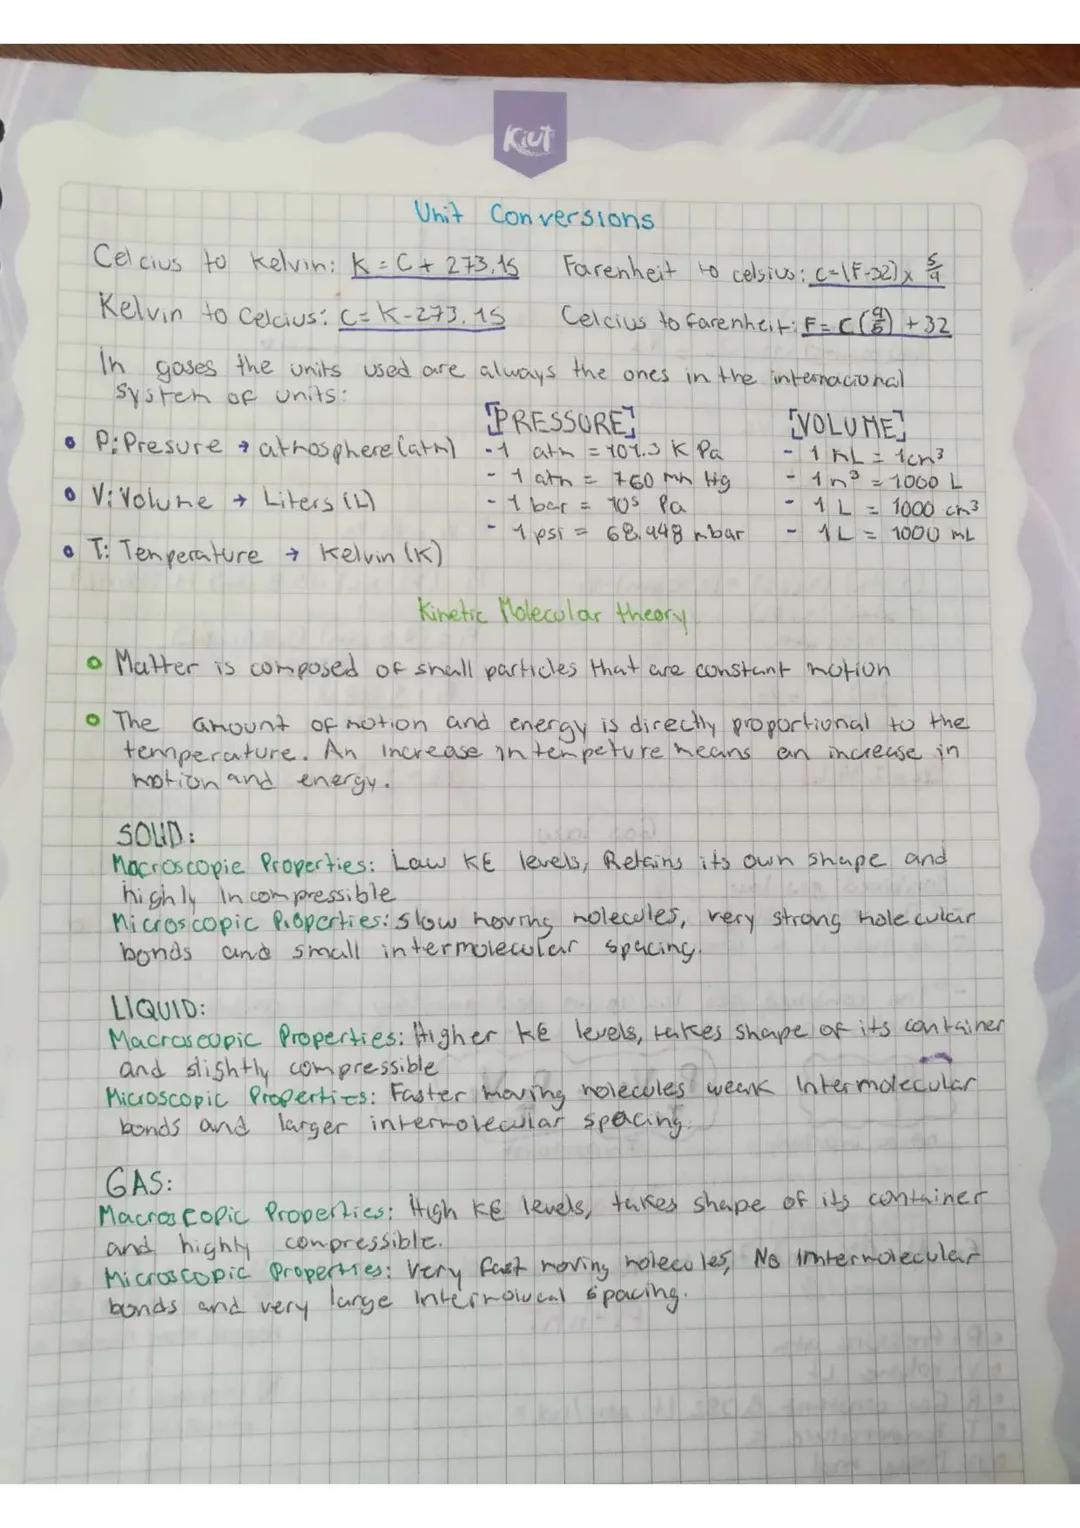 Kiut
Unit Conversions
Celcius to Kelvin: K = C + 273.15 Farenheit to celsius: C=(F-32) x 5/9
Kelvin to Celcius: C= K-273.15 Celcius to farenheit: F= C(9/5) +32
In gases the units used are always the ones in the internacional
system of units:
[PRESSURE] [VOLUME]
• P: Presure → athosphere (atm) -1 atm = 101.3 K Pa - 1 mL = 1cm³
- 1 atm = 760 mm Hg - 1m³ = 1000 L
• V: Volume → Liters (L) - 1 bar = 10⁵ Pa - 1 L = 1000 cm³
- 1 psi = 68,948 mbar - 1L = 1000 mL
• T: Temperature → Kelvin (K)
Kinetic Molecular theory
• Matter is composed of small particles that are constant motion
• The amount of motion and energy is directly proportional to the
temperature. An increase in tempeture means an increase in
motion and energy.
SOLID:
Macroscopic Properties: Low KE levels, Retains its own shape and
highly Incompressible
Microscopic Properties: Slow moving molecules, very strong molecular
bonds and small intermolecular spacing.
LIQUID:
Macroscopic Properties: Higher KE levels, takes shape of its container
and slightly compressible
Microscopic Properties: Faster moving molecules weak Intermolecular
bonds and larger intermolecular spacing.
GAS:
Macroscopic Properties: High KE levels, takes shape of its container
and highly compressible.
Microscopic Properties: Very fast moving molecules, No intermolecular
bonds and very large Intermolucal spacing.